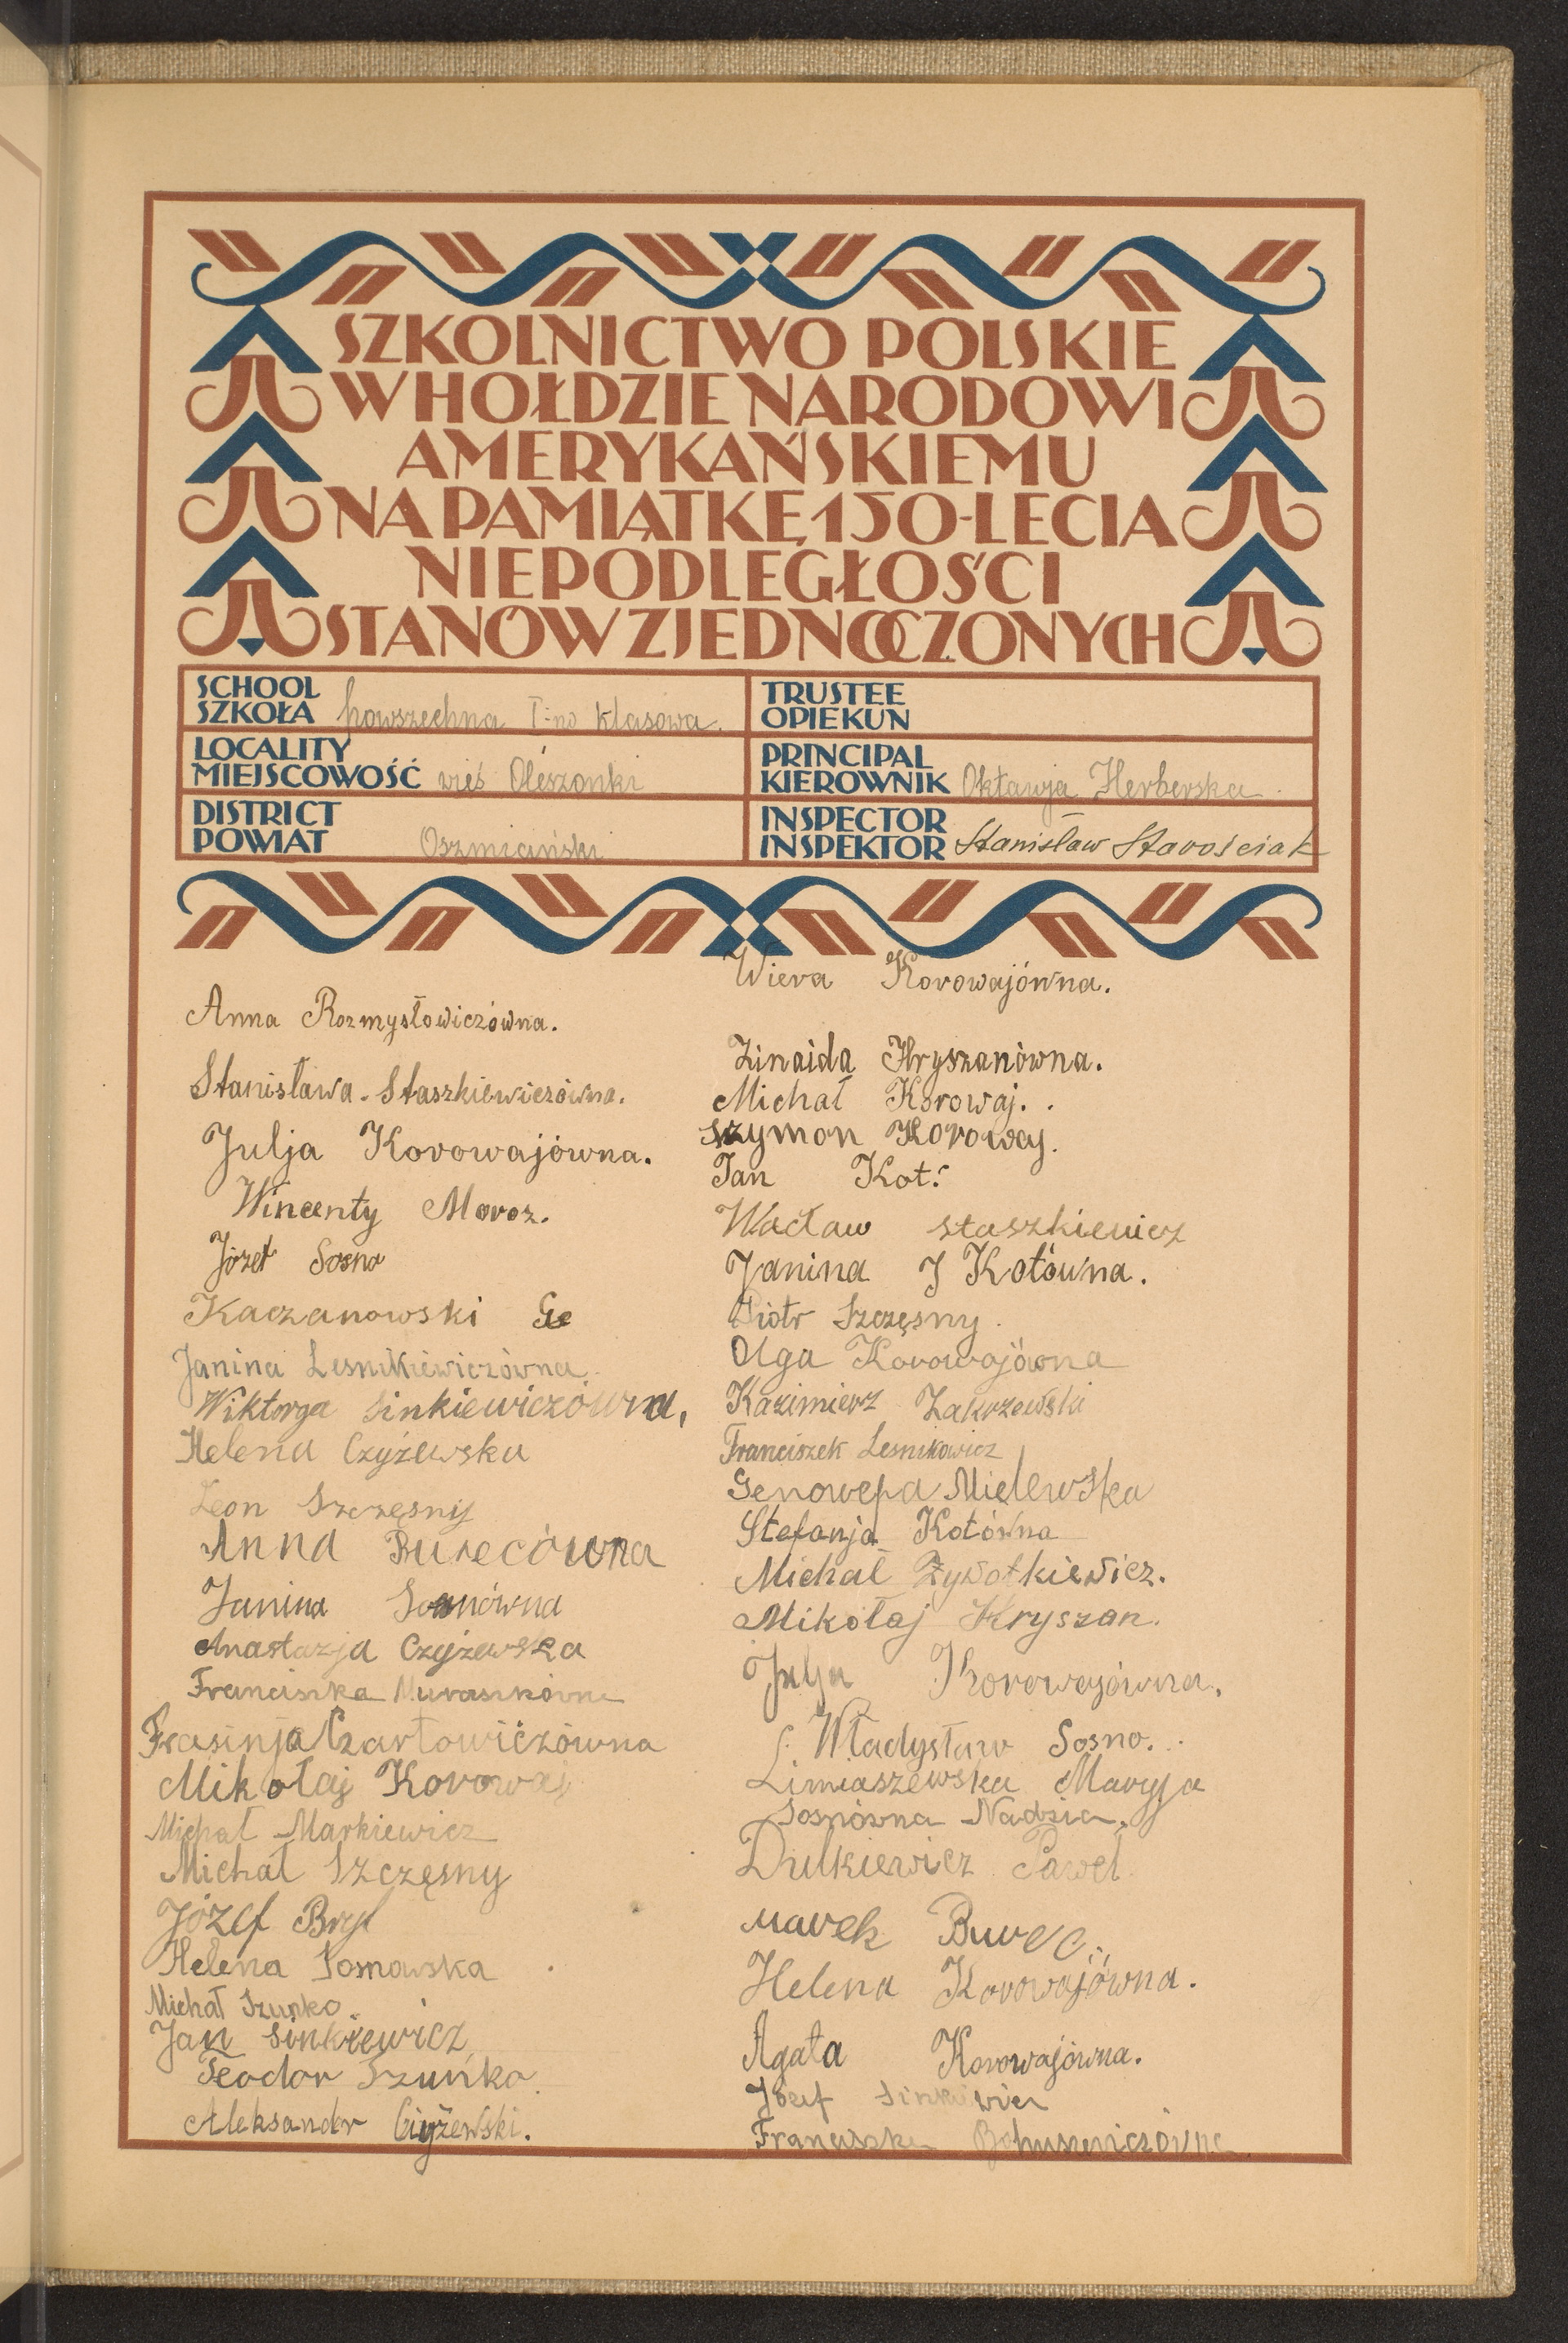 SZKOLNICTWO POLSKIE
W HOŁDZIE NARODOWI
AMERYKAŃSKIEMU
NA PAMIĄTKĘ 150-LECIA
NIEPODLEGŁOŚCI
STANÓW ZJEDNOCZONYCH
SCHOOL
SZKOŁA powszechna I-no klasowa.
LOCALITY
MIEJSCOWOŚĆ wieś Oleszonki
DISTRICT
POWIAT Oszmiański
TRUSTEE
OPIEKUN
PRINCIPAL
KIEROWNIK Oktawja Herberska
INSPECTOR
INSPEKTOR Stanisław Starościak
Anna Rozmysłowiczówna.
Stanisława-Staszkiewiczówna.
Julja Korowajówna.
Wincenty Moroz.
Józef Sosno
Kaczanowski Ge
Janina Lesnikiewiczówna
Wiktorya Sinkiewiczówna,
Helena Czyżewska
Leon Szczęsny
Anna Burecówna
Janina Sosnówna
Anastazja Czyżewska
Franciszka Muraszkówna
Frasinja Czartowiczówna
Mikołaj Korowaj
Michał Markiewicz
Michał Szczęsny
Józef Bryl
Helena Sosnowska
Michał Szunko.
Jan Sinkiewicz
Teodor Szuńko.
Aleksander Czyżewski.
Wiera Korowajówna.
Zinaida Hryszanówna.
Michał Korowaj.
Szymon Korowaj.
Jan Kot.
Wacław Staszkiewicz
Janina J Kotówna.
Piotr Szczęsny.
Olga Korowajówna
Kazimierz Zakrzewski
Franciszek Lesnikowicz
Genowefa Milewska
Stefanja Kotówna
Michał Żywotkiewicz.
Mikołaj Hryszan.
Julja Korowajówna.
Władysław Sosno.
Limiaszewska Maryja
Sosnówna Nadzia.
Dulkiewicz Paweł
Marek Burec.
Helena Korowajówna.
Agata Korowajówna.
Józef Sinkiewicz
Franciszka Bohuszewiczówna